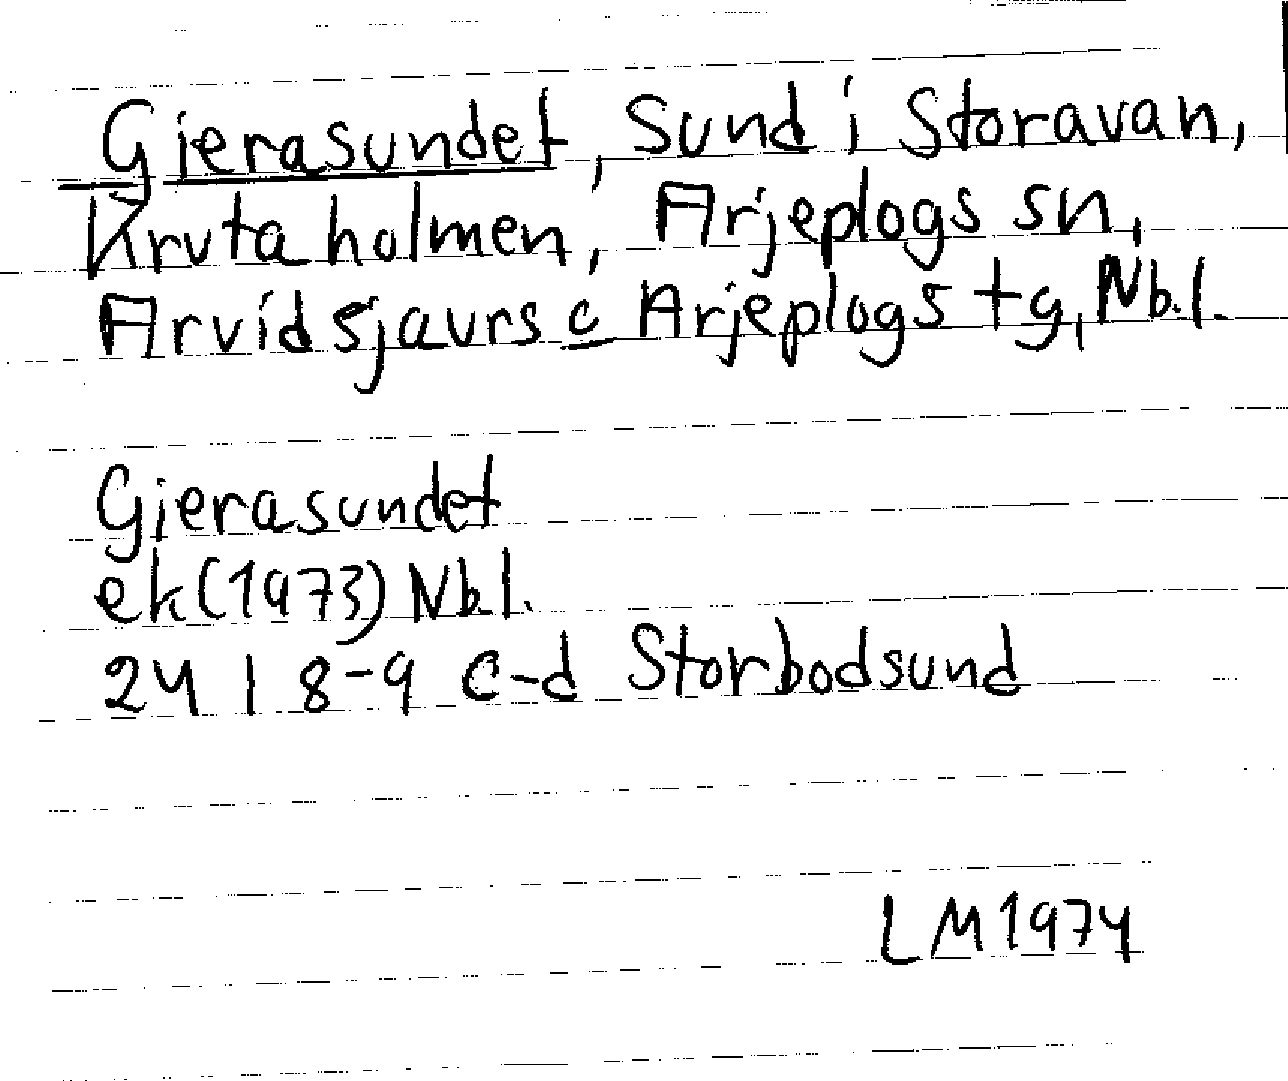 Gierasundet, Sund i Storavan,
Krutaholmen, Arjeplogs sn,
Arvidsjaurs o Arjeplogs tg, Nb.l.
Gierasundet
ek (1973) Nb.l.
24 I 8-9 c-d Storbodsund
LM 1974